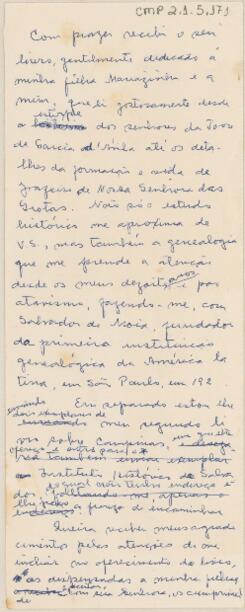 CMP 2.1.5.171
Com prazer recebi o seu
livro, gentilmente dedicado à
minha filha Mariazinha e a
mim, que li gostosamente desde
a estirpe dos senhores da Torre
de Garcia d'Avila até os deta-
lhes da formação e vida de
Joazeiro de Nossa Senhora das
Grotas. Não só o estudo
histórico me aproxima de
V.S., mas também a genealogia
que me prende a atenção
desde os meus dezoito anos e por
atavismo, fazendo-me, com
Salvador de Moia, fundador
da primeira instituição
genealógica da América la
tina, em São Paulo, em 192
Em separado estou lhe
enviando dois exemplares de
meu segundo li
vro sobre Campinas, um que lhe
ofereço e outro para o
Instituto Histórico da Bahia
do qual não tenho endereço e
lhe peço
o favor de encaminhar
Queira receber meus agrade
cimentos pelas atenções de me
incluir no oferecimento do livro,
as dispensadas a minha filha,
com sua Senhora, os cumprimentos
de